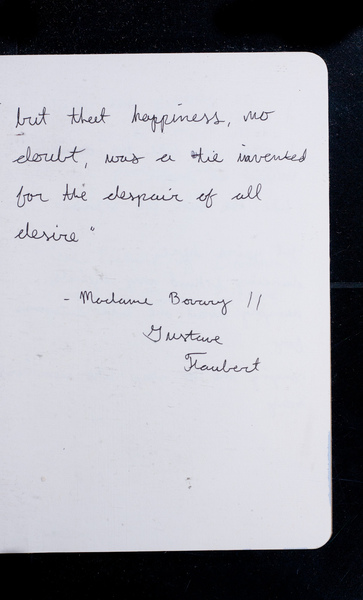 but that happiness, no
doubt, was a lie invented
for the despair of all
desire"
- Madame Bovary //
Gustave
Flaubert